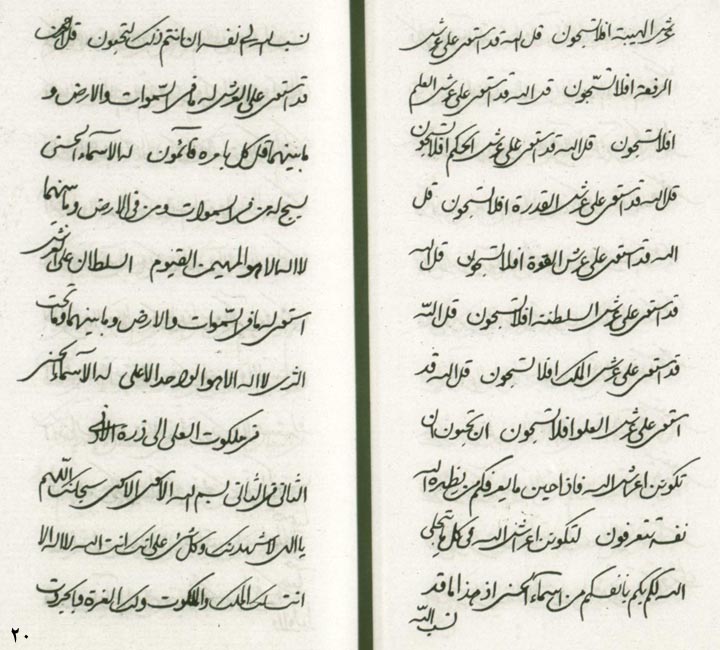 عرش الهيبة افلا تسبحون قل الله قد استوى على عرش
الرفعة افلا تسبحون قل الله قد استوى على عرش العلم
افلا تسبحون قل الله قد استوى على عرش الحكم افلا تسبحون
قل الله قد استوى على عرش القدرة افلا تسبحون قل
الله قد استوى على عرش القوة افلا تسبحون قل الله
قد استوى على عرش السلطنة افلا تسبحون قل الله
قد استوى على عرش الملك افلا تسبحون قل الله قد
استوى على عرش العلو افلا تسبحون ان تحبون ان
تكونن اعراش الله فاذا حين ما يعرفكم من يظهره الله
نفسه تعرفون لتكونن اعراش الله في كل ما يتجلى
الله لكم بكم بانفسكم من اسماء الحسنى اذ هذا ما قد
نسب الله
نسب الله الى نفسه ان انتم ذلك لتحبون قل الرحمن
قد استوى على العرش له ما في السموات والارض و
ما بينهما قل كل بامره قائمون له الاسماء الحسنى
يسبح له من في السموات ومن في الارض وما بينهما
لا اله الا هو المهيمن القيوم السلطان على العرش
استوى له ما في السموات والارض وما بينهما وما تحت
الثرى لا اله الا هو الواحد الاعلى له الاسماء الحسنى
من ملكوت العلى الى ذرة الادنى
الثاني في الثاني بسم الله الامنع الاقدس سبحانك اللهم
يا الهي لاشهدنك وكل شيء على انك انت الله لا اله الا
انت لك الملك والملكوت ولك العزة والجبروت
٢٠